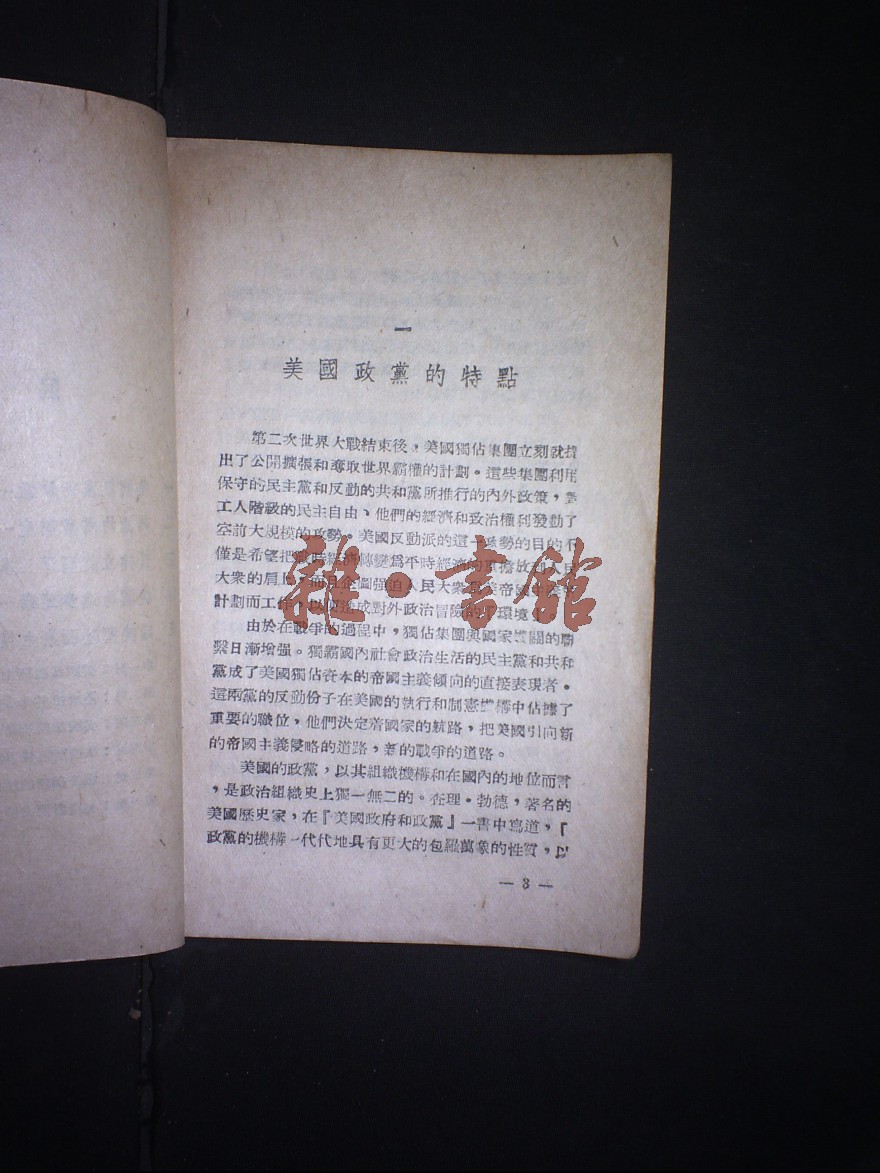 一
美國政黨的特點
第二次世界大戰結束後，美國獨佔集團立刻就
出了公開擴張和奪取世界霸權的計劃。這些集團利用
保守的民主黨和反動的共和黨所推行的內外政策，對
工人階級的民主自由、他們的經濟和政治權利發動了
空前大規模的攻勢。美國反動派的這一攻勢的目的不
僅是希望把戰時經濟轉變爲平時經濟的重擔放到人民
大衆的肩上，而且企圖强迫人民大衆
計劃而工作，以便造成對外政治冒險的環境。
由於在戰爭的過程中，獨佔集團與國家機關的聯
繫日漸增强。獨霸國內社會政治生活的民主黨和共和
黨成了美國獨佔資本的帝國主義傾向的直接表現者。
這兩黨的反動份子在美國的執行和制憲機構中佔據了
重要的職位，他們決定着國家的航路，把美國引向新
的帝國主義侵略的道路，新的戰爭的道路。
美國的政黨，以其組織機構和在國內的地位而言
，是政治組織史上獨一無二的。查理·勃德，著名的
美國歷史家，在『美國政府和政黨』一書中寫道，『
政黨的機構一代代地具有更大的包羅萬象的性質，以
— 3 —
雜·書館